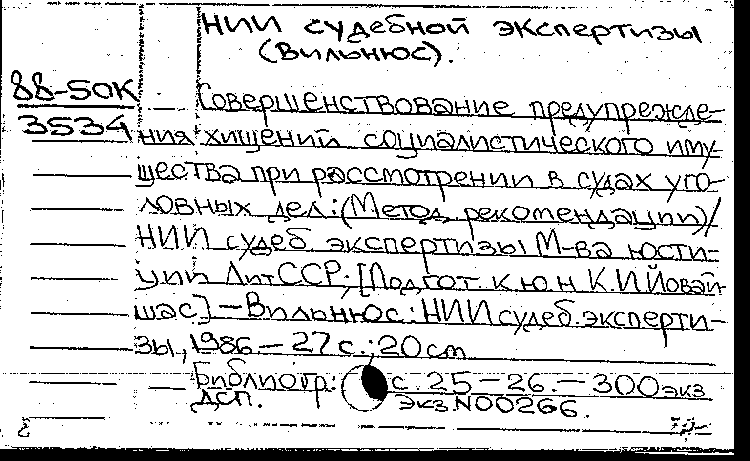 НИИ судебной экспертизы
(Вильнюс).
88-5ОК
3534
Совершенствование предупрежде-
ния хищений социалистического иму-
щества при рассмотрении в судах уго-
ловных дел: (Метод. рекомендации)/
НИИ судеб. экспертизы М-ва юсти-
ции ЛитССР; [Подгот. к.ю.н. К.И.Йовай-
шас]—Вильнюс: НИИ судеб. эксперти-
зы, 1986—27 с.; 20 cm
Библиогр.: с. 25—26.—300 экз
ДСП. Экз.N00266.